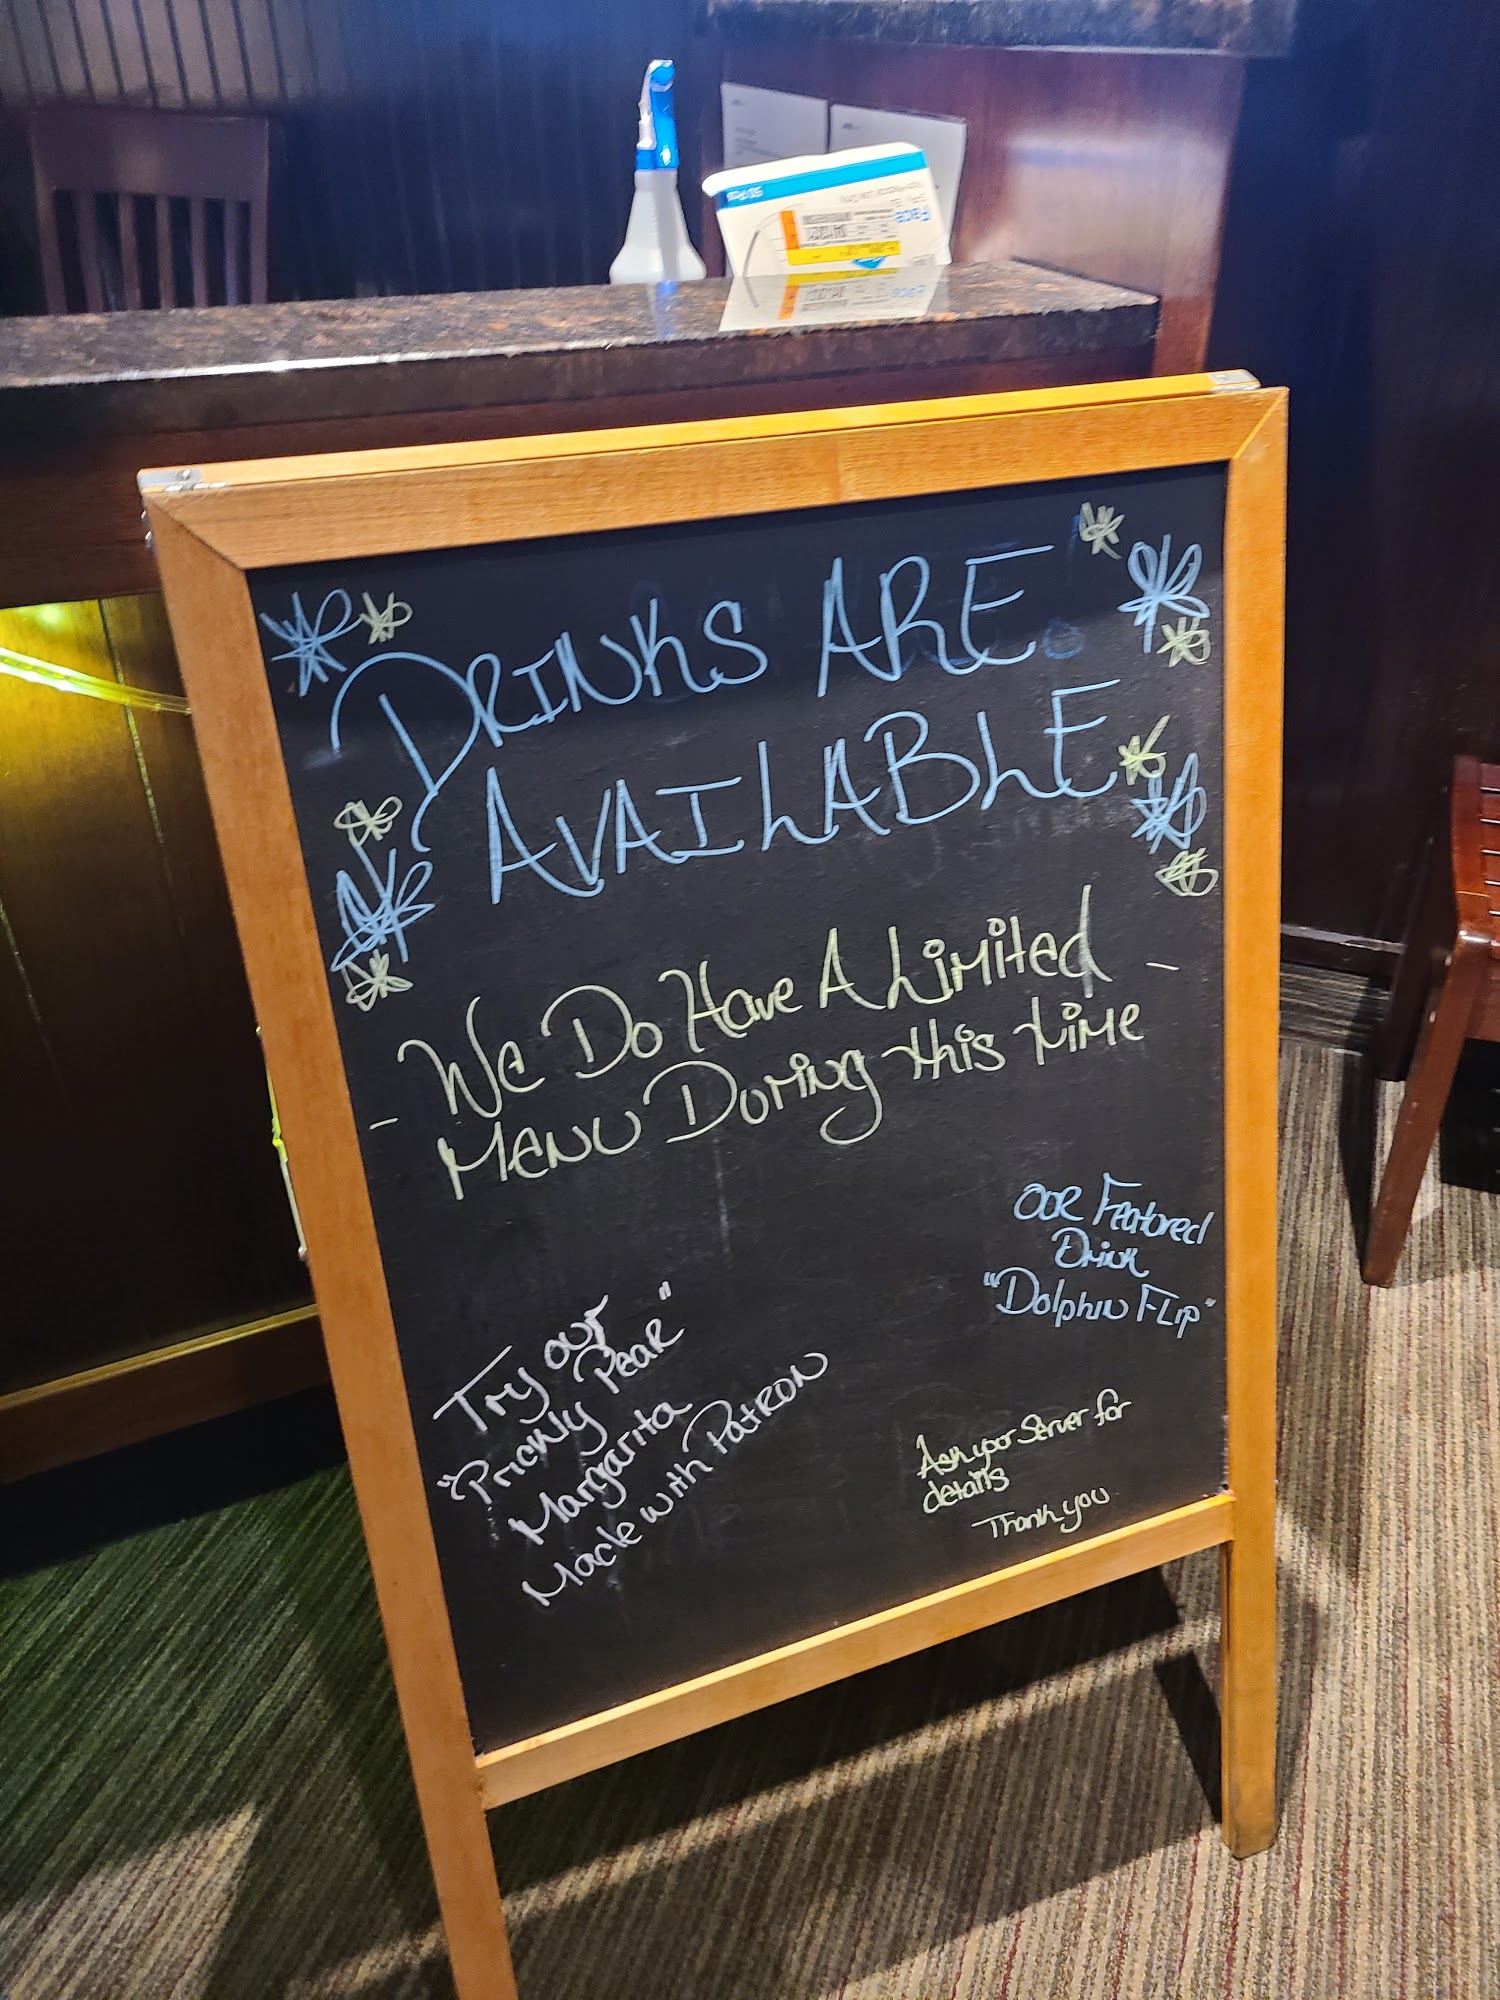 DRINKS ARE
AVAILABLE
- We Do Have A Limited -
Menu During this time
OUR Featured
Drink
"Dolphin Flip"
Try our
"Prickly Pear"
Margarita
Made with Patron
Ask your Server for
details
Thank you
50 Pcs
Face